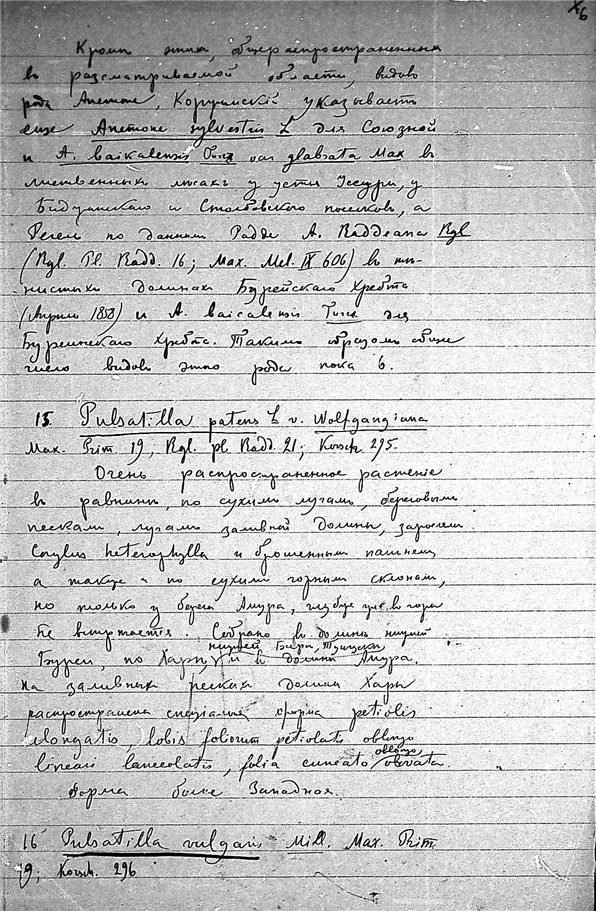 Кромѣ этихъ, общераспространенныхъ
въ разсматриваемой области, видовъ
рода Anemone, Коржинскій указываетъ
еще Anemone sylvestris L для Союзной
и A. baikalensis Turcz var glabrata Max въ
лиственныхъ лѣсахъ у устья Уссури, у
Биджанскаго и Столбовского поселковъ, а
Регель по даннымъ Радде A. Raddeana Rgl
(Rgl. Pl. Radd. 16; Max. Mel. IX 606) въ тѣ-
нистыхъ долинахъ Бурейскаго Хребта
(Апрѣль 1858) и A. baicalensis Turcz для
Буреинскаго Хребта. Такимъ образомъ общее
число видовъ этого рода пока 6.
15. Pulsatilla patens L v. Wolfgangiana
Max. Prim 19, Rgl. pl Radd. 21; Korsch. 295.
Очень распространенное растеніе
въ равнинѣ, по сухимъ лугамъ, береговымъ
пескамъ, лугамъ заливной долины, зарослямъ
Corylus heterophylla и брошеннымъ пашнямъ
а также и по сухимъ горнымъ склонамъ,
но только у берега Амура, глубже уже въ горы
не встрѣчается. Собрано въ долинѣ нижней
нижней Биры,
Буреи, по и въ долинѣ Амура.
на заливныхъ пескахъ долины
распространена спеціальная форма petiolis
elongatis, lobis foliorum petiolatis oblongo
lineari lanceolatis, folia cuneato oblongo obovata.
Форма болѣе Западная.
16 Pulsatilla vulgaris Mill. Max. Prim.
19; Korsch. 296